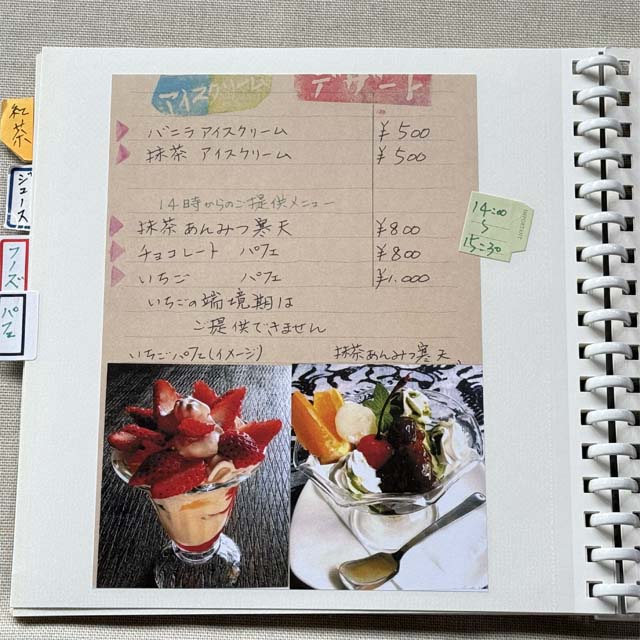 アイスクリーム デザート
バニラアイスクリーム ¥500
抹茶 アイスクリーム ¥500
14時からのご提供メニュー
抹茶あんみつ寒天 ¥800
チョコレート パフェ ¥800
いちご パフェ ¥1.000
いちごの端境期は
ご提供できません
いちごパフェ(イメージ)
抹茶あんみつ寒天、
紅茶
ジュース
パフェ
14:00
〜
15:30
IMPORTANT